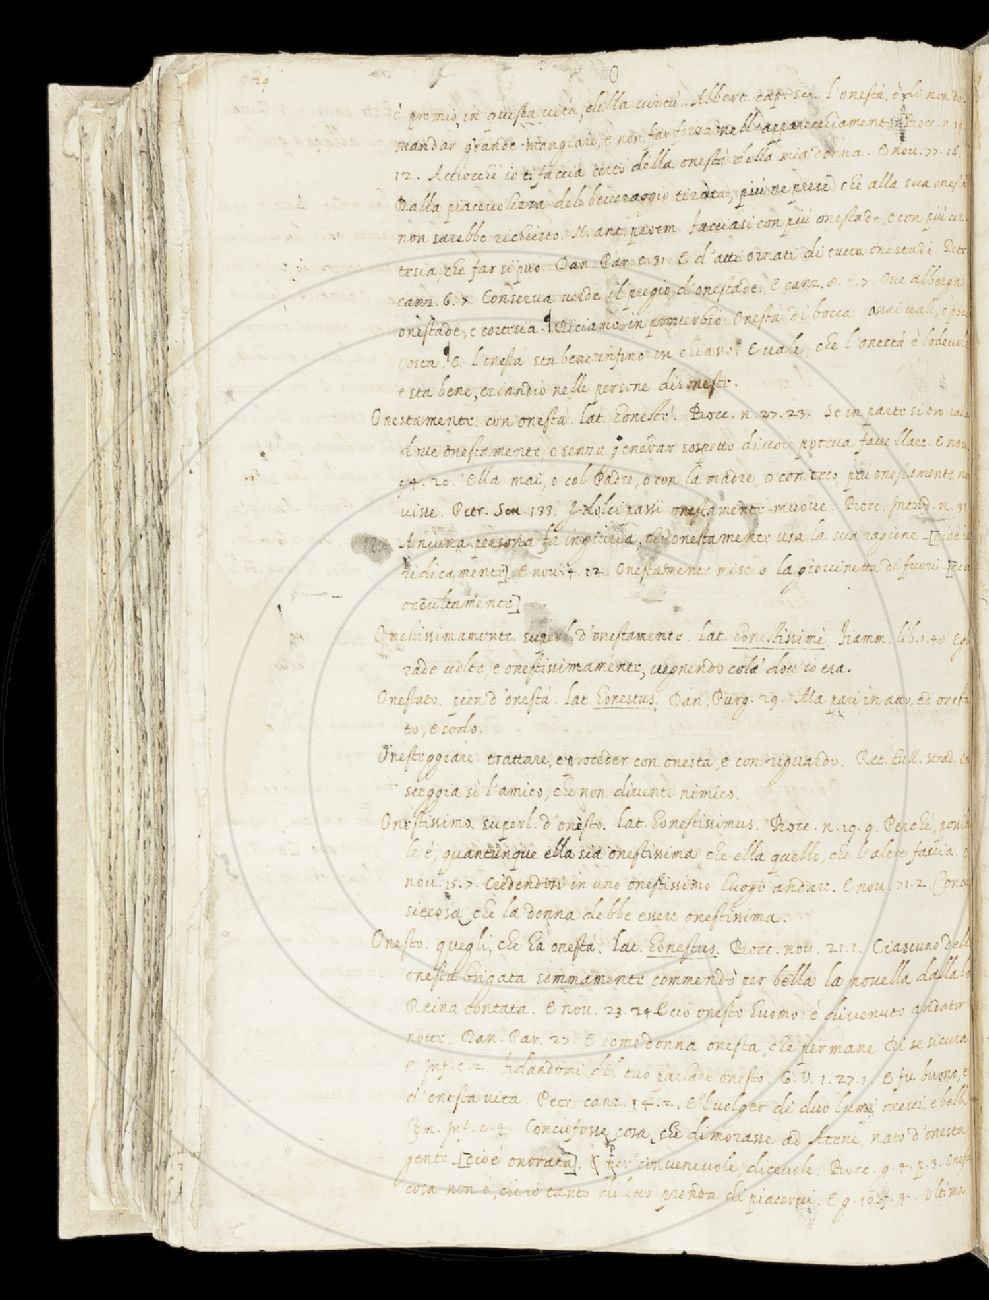 O
è premio, in questa vita, della virtù. Albert. cap. 52. L'onestà, è di non do
mandar grande mangiare, e non far forza nell'apparecchiamento. Bocc. n. 19
12. Acciocchè io ti faccia certo della onestà della mia donna. E nou. 77. 16.
Dalla piacevolezza del beveraggio tirata, più ne prese che alla sua onestà
non sarebbe richiesto. N. ant. proem. Facciasi con più onestade, e con più cor
tesia, che far si può. Dan. Par. c. 31. E d'atti ornati di tutte onestadi. Petr
canz. 6. 7. Conserva verde il pregio d'onestade. E canz. 7. Ove alberga
onestade, e cortesia. Diciamo in proverbio. Onestà di bocca assai vale, e poco
costa. E. L'onestà sta bene infino in chiasso. E vale, che l'onestà è lodevole
e sta bene, eziandio nelle persone disoneste.
Onestamente. con onestà. lat. honestè. Bocc. n. 27. 23. Se in parte si trovava
dove onestamente e senza generar sospetto di voi poteva favellare. E nou.
20. Ella mai, o col Padre, o con la madre, o con altro, più onestamente no
visse. Petr. Son. 133. I dolci passi onestamente muove. Bocc. Introd. n. 31
Ancuna persona fa ingiuria, chi onestamente usa la sua ragione [cioè
ridicamente]. E nou. 4. 12. Onestamente misero la giovinetta di fuori [cioè
occultamente]
Onestissimamente. superl. d'onestamente. lat. honestissimè. Fiamm. lib. 1. 40. E
rade volte, e onestissimamente, vegnendo colà dov'io era.
Onestato. pien d'onestà. lat. honestus. Dan. Purg. 29. Ma pari in atto, ed onesta
to, e sodo.
Onesteggiare. trattare, e proceder con onestà, e con riguardo. Ret. Tull.
steggia sì l'amico, che non diventi nimico.
Onestissimo. superl. d'onesto. lat. honestissimus. Bocc. n. 19. 9. Perchè, possibi
le è, quantunque ella sia onestissima che ella quello, che l'altre faccia. E
nou. 15. 7. Credendosi in uno onestissimo luogo andare. E nou. 71. 2. Conciò
siecosa che la donna debbe essere onestissima.
Onesto. quegli, che hà onestà. lat. honestus. Bocc. nou. 21. 1. Ciascuno dell
onesta brigata sommamente commendò per bella la novella dalla lo
Reina contata. E nou. 23. 24. E ciò onesto huomo è divenuto andator
notte. Dan. Par. 27. E come donna onesta, che permane di se sicura
E Inf. c. 2. Fidandomi del tuo parlare onesto. G. V. 1. 27. 1. E fu buono, e
d'onesta vita. Petr. canz. 14. 2. E'l volger di duo lumi onesti, e belli
Com. Inf. c. 4. Conciofosse cosa, che dimorasse ad Atene, nato d'onesta
gente [cioè onorata]. per convenevole, dicevole. Bocc. g. 4. p. 3. Onesta
cosa non è, che io tanto diletto prenda di piacervi. E g. 10. f. 4. Ultima